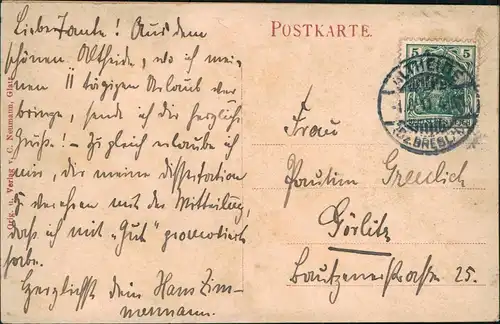 POSTKARTE.
Liebe Tante! Aus dem
schönen Altheide, wo ich mei-
nen 11 tägigen Urlaub ver
bringe, sende ich dir herzlich
Grüße! – Zugleich erlaube ich
mir, dir meine Dissertation
z verehren mit der Mitteilung,
daß ich mit „Gut" promoviert
habe.
Herzlichst dein Hans Zim-
mermann.
Orig. u. Verlag v. C. Neumann, Glatz
5 5
ALTHEIDE
(BZ. BRESLAU)
Frau
Paulin
Görlitz
Bautzenerstraße 25.